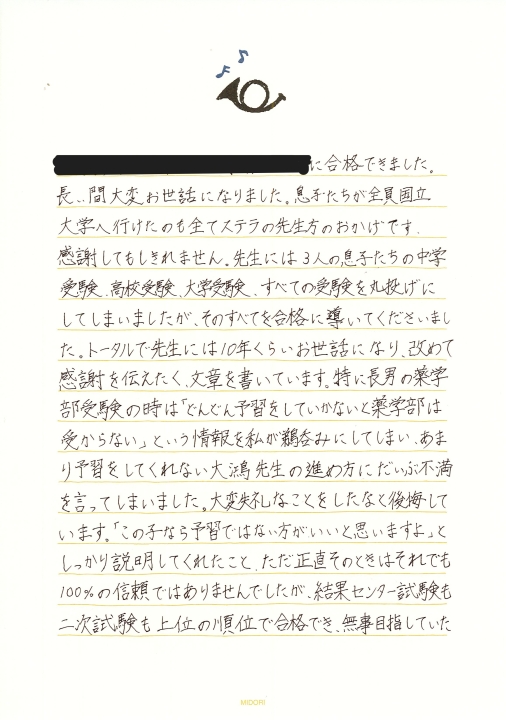 に合格できました。
長い間大変お世話になりました。息子たちが全員国立
大学へ行けたのも全てステラの先生方のおかげです。
感謝してもしきれません。先生には3人の息子たちの中学
受験、高校受験、大学受験、すべての受験を丸投げに
してしまいましたが、そのすべてを合格に導いてくださいまし
た。トータルで先生には10年くらいお世話になり、改めて
感謝を伝えたく、文章を書いています。特に長男の薬学
部受験の時は「どんどん予習をしていかないと薬学部は
受からない」という情報を私が鵜呑みにしてしまい、あま
り予習をしてくれない大鴻先生の進め方にだいぶ不満
を言ってしまいました。大変失礼なことをしたなと後悔して
います。「この子なら予習ではない方がいいと思いますよ」と
しっかり説明してくれたこと、ただ正直そのときはそれでも
100%の信頼ではありませんでしたが、結果センター試験も
二次試験も上位の順位で合格でき、無事目指していた
MIDORI